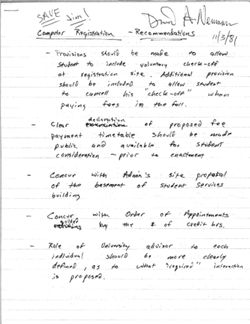 SAVE Jim!
David A. Newman
11/3/81
Computer Registration - Recommendations
- Provisions should be made to allow
student to include voluntary check-off
at registration site. Additional provision
should be included to allow student
to cancel his "check-off" when
paying fees in the fall.
- Clear declaration of proposed fee
payment timetable should be made
public and available for student
consideration - prior to enactment
- Concur with Admin's site proposal
of the basement of Student Services
building
- Concur with Order of Appointments
by the # of credit hrs.
- Role of University advisor to each
individual should be more clearly
defined, as to what "required" interaction
is proposed.